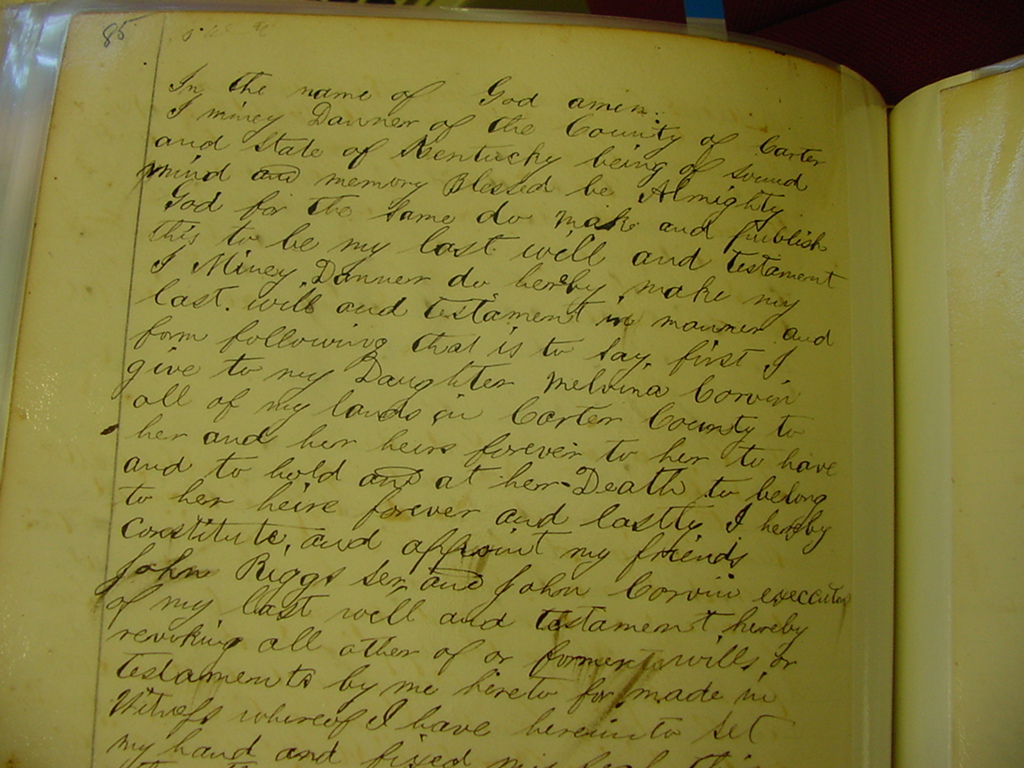 85
In the name of God amen.
I miney Danner of the County of Carter
and State of Kentucky being of sound
mind and memory Blessed be Almighty
God for the same do make and publish
this to be my last will and testament
I Miney Danner do hereby make my
last will and testament in manner and
form following that is to say, first I
give to my Daughter Melvina Corvin
all of my lands in Carter County to
her and her heirs forever to her to have
and to hold and at her Death to belong
to her heire forever and lastly I hereby
Constitute, and appoint my friends
John Riggs Ser, and John Corvin executor
of my last will and testament, hereby
revoking all other of or former wills or
testaments by me hereto for made in
Witness whereof I have hereinto set
my hand and fixed my seal this